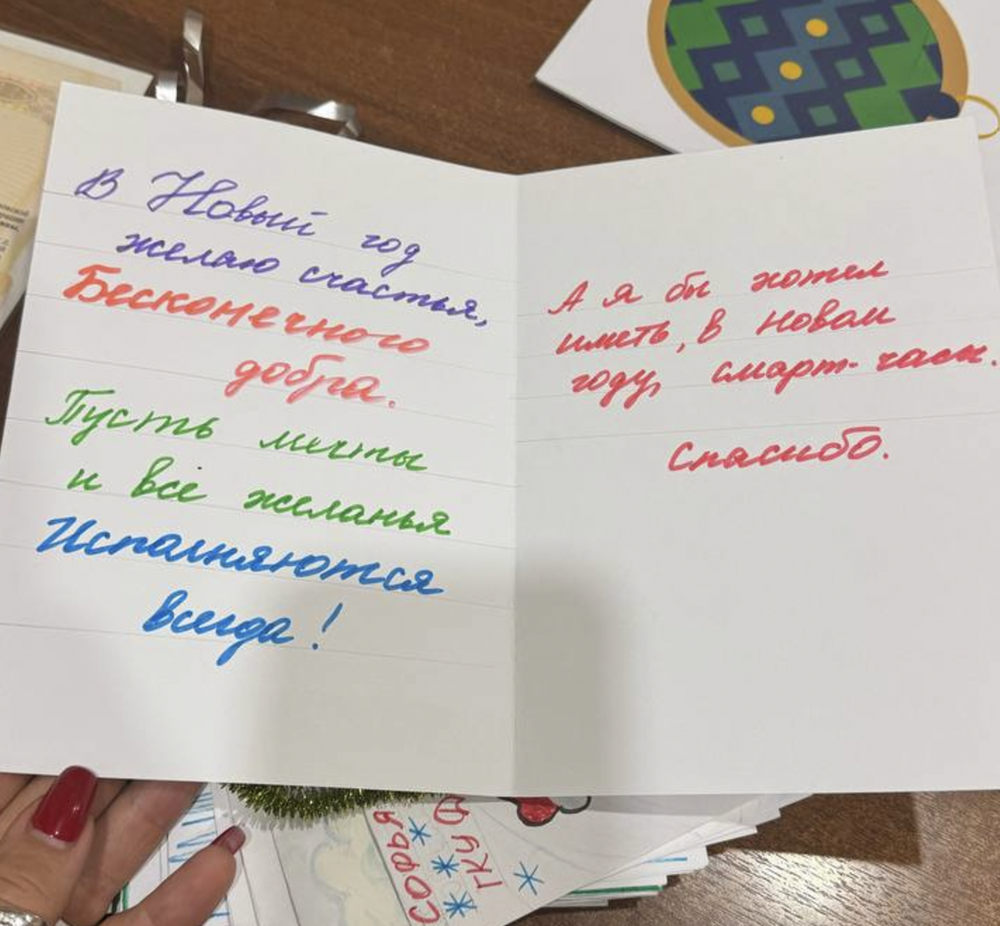 В Новый год
желаю счастья,
Бесконечного
добра.
Пусть мечты
и все желанья
Исполняются
всегда!
А я бы хотел
иметь, в новом
году, смарт-часы.
Спасибо.